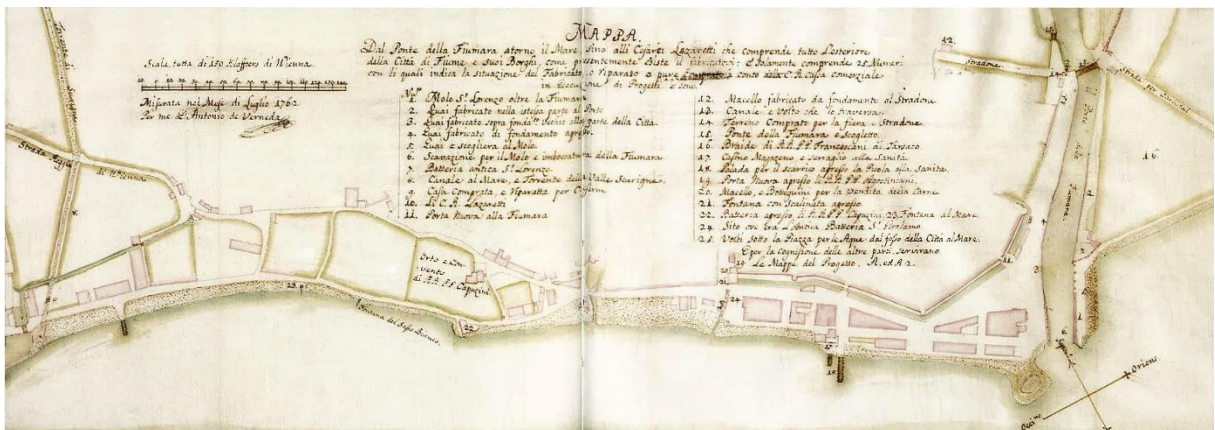 MAPPA.
Dal Ponte della Fiumara atorno il Mare sino alli Cesarei Lazaretti che comprende tutto L'esteriore
della Città di Fiume e suoi Borghi, come presentemente Esiste il fabricato: e solamente comprende 25 Numeri
con li quali indica la Situazione del Fabricato, o riparato o pure Comprato à conto della C. R. Cassa comerciale
in di Progetti e sono.
Scala tutta di 150 Klafferi di Wienna
Misurata nel Mese di Luglio 1762.
Per me Antonio de Verneda
1. Molo Sn. Lorenzo oltre la Fiumara
2. Quai fabricato nella istessa parte al Ponte
3. Quai fabricato sopra fondata. Vechio alla parte della Città
4. Quai fabricato di fondamento apresso
5. Quai e Scogliera al Molo.
6. Scavazione per il Molo e imboccatura della Fiumara
7. Batteria antica Sn. Lorenzo
8. Canale al Mare, e Torrente della Valle Scurigne
9. Casa Comprata, e riparatta per
10. Li C. R. Lazaretti
11. Porta Nuova alla Fiumara
12. Macello fabricato da fondamento al Stradone
13. Canale e Volto che lo traversa
14. Terreno Comprato per la fiera e Stradone
15. Ponte della Fiumara e Scoglietto
16. Braide di R.R. P.P. Francescani di Tersaco
17. Casino Magazeno e serraglio alla Sanità
18. Palada per il scarico apresso la alla Sanità
19. Porta Nuova apresso li R.R. P.P. Agostiniani
20. Macello, e Botteguini per la Vendita della Carne
21. Fontana con Scalinata apresso
22. Batteria apresso li R.R. P.P. Capucini. 23. Fontana al Mare
24. Sito ove era l'Antica Batteria Sn. Girolamo
25. Volti Sotto la Piazza per le Aque dal fosso della Città al Mare.
E per la cognizione delle altre parti, serviranno
Le Mappe del Progetto. A. ed A 2.
Strada Regia
di Wienna
Orto e Con-
vento
di R.R. P.P. Capucini
Fontana del Sasso Bianco.
Stradone
Fiumara
Oriens
12.
16.
23
22
24
11
18